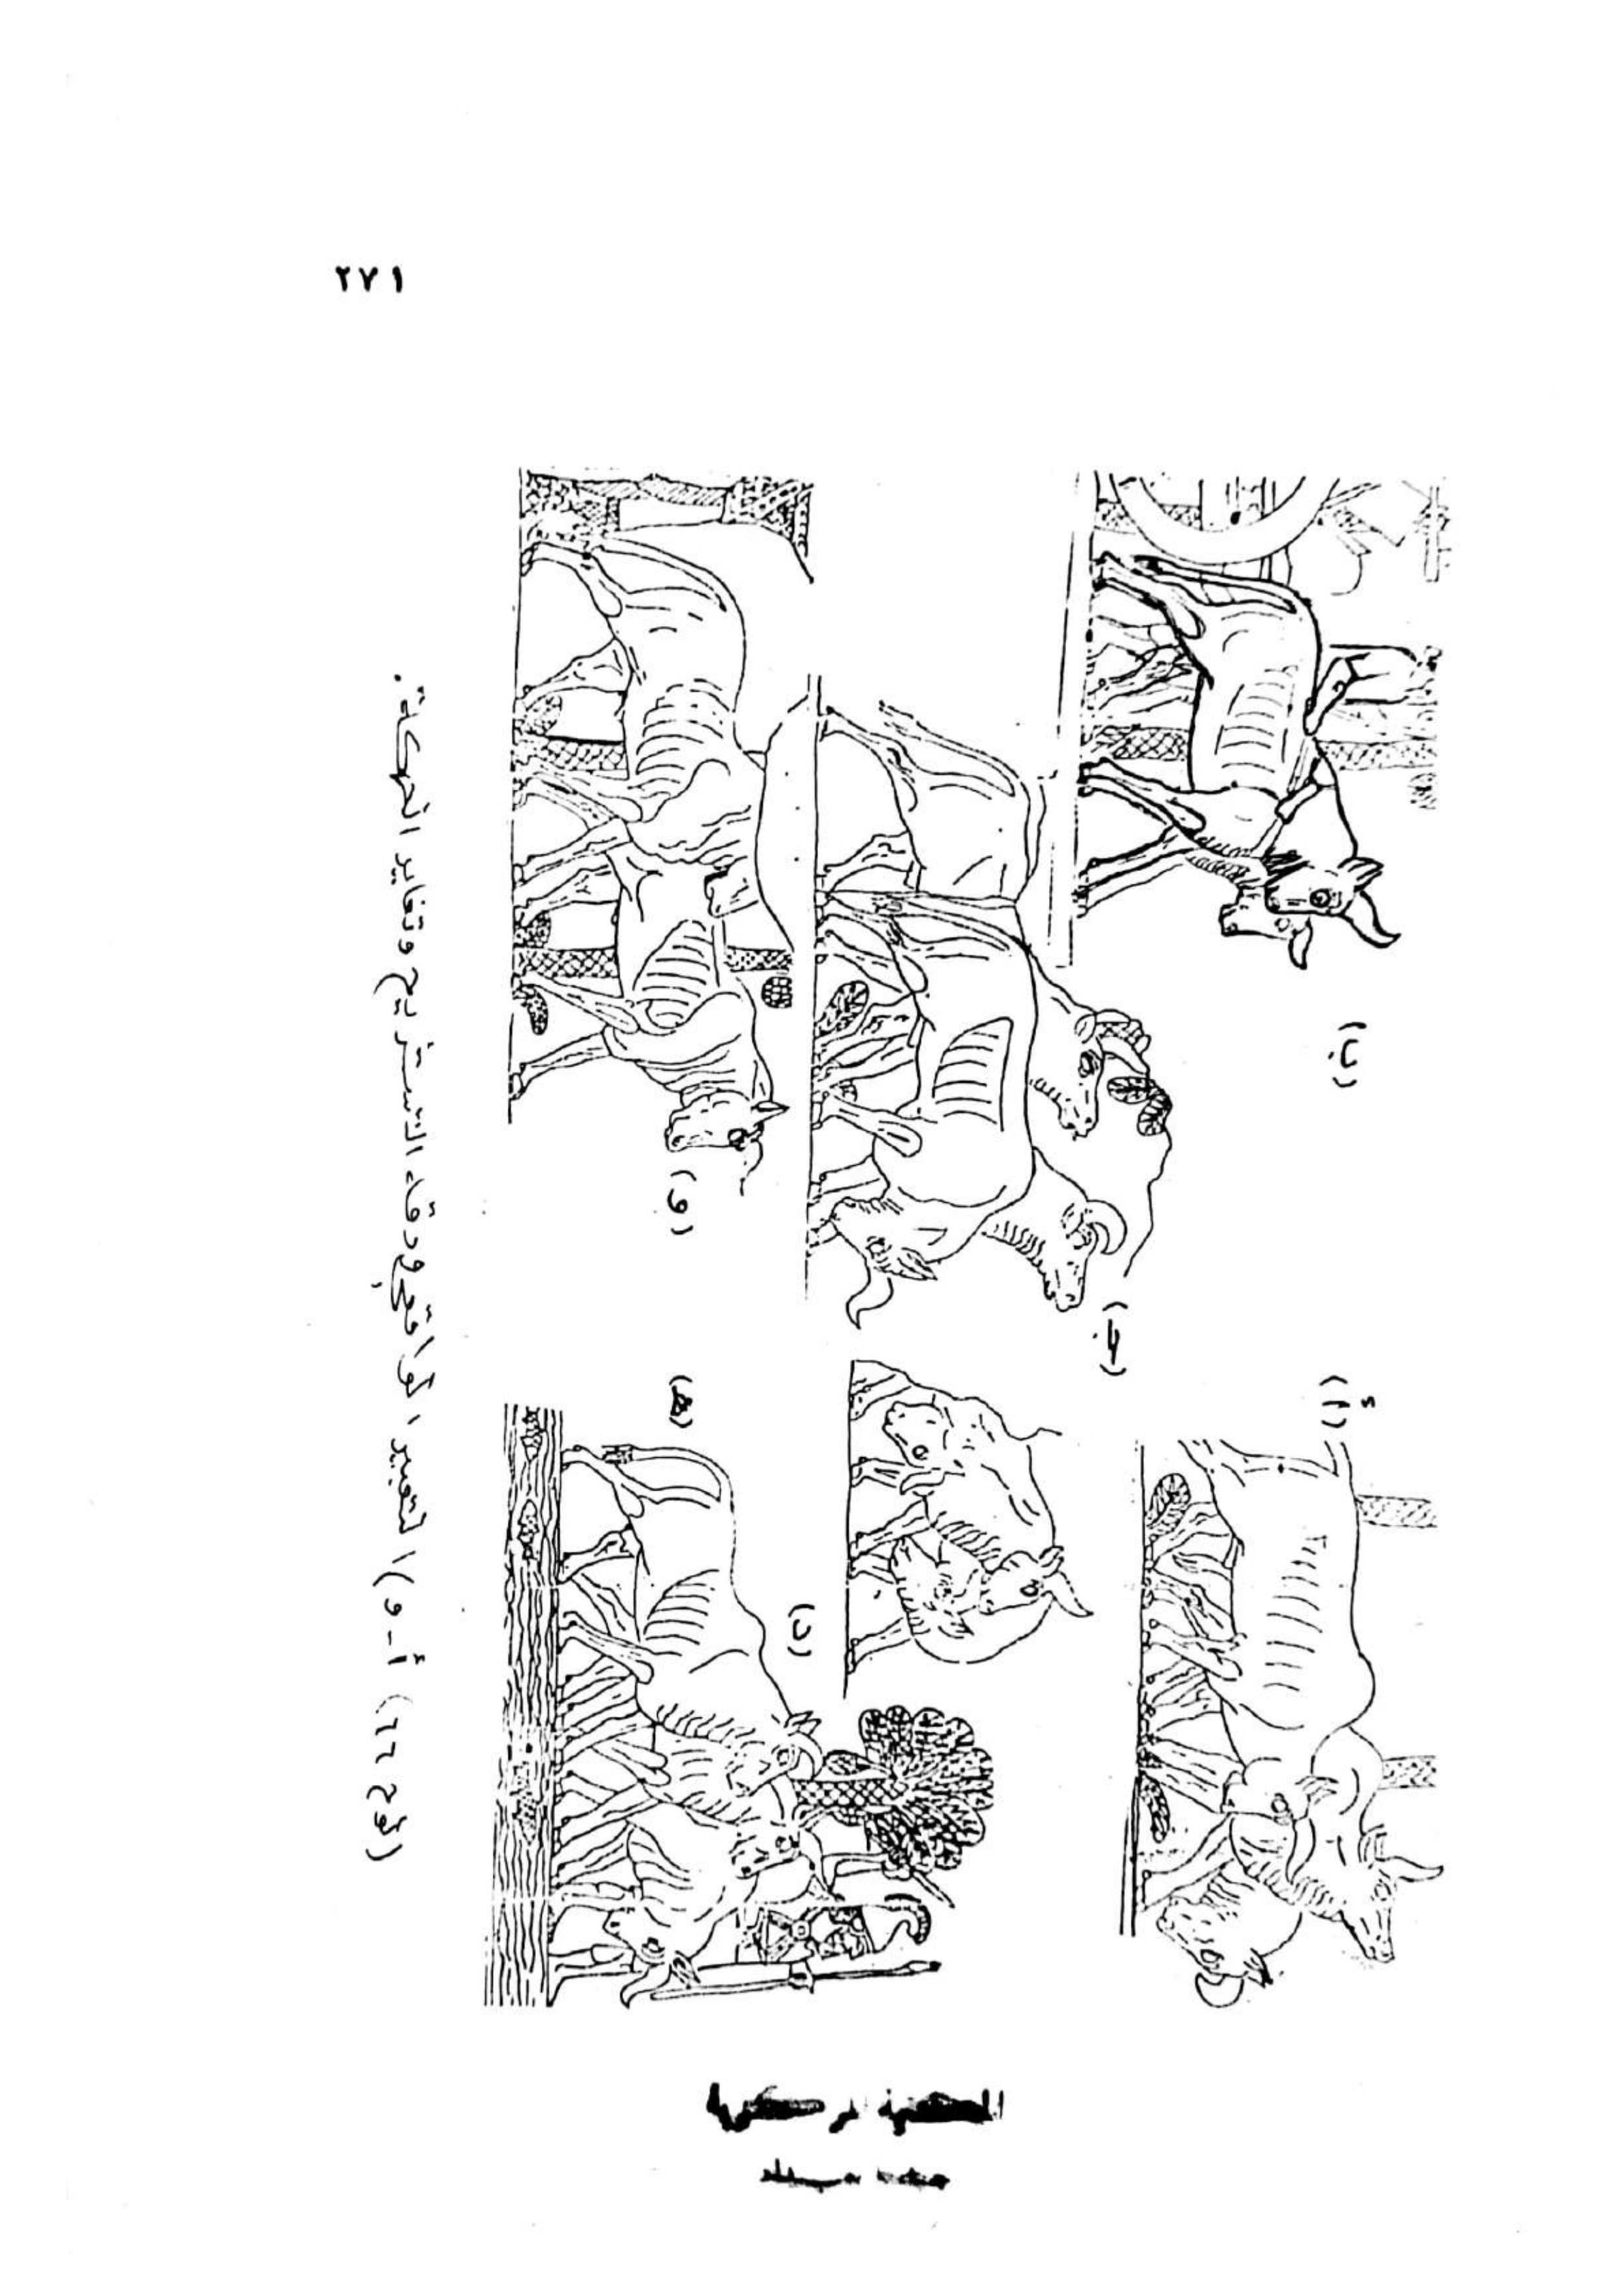 ٢٧١
(أ)
(ب)
(ج)
(د)
(هـ)
(و)
(لوح ٦٦) (أ - و) التعبير الواقعي ودقة التشريح وتغاير الحركة.